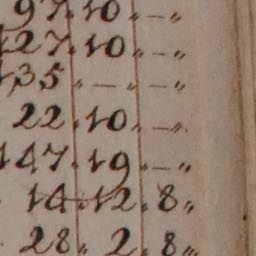 97. 10. — „
127. 10. — „
135 „ — . — „
22. 10. — „
147. 19. — „
14. 12. 8 „
28 „ 2. 8 „